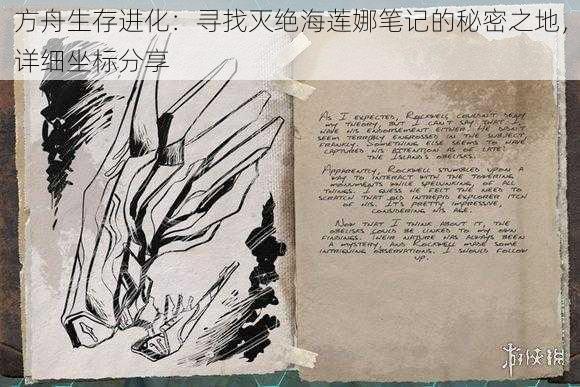 方舟生存进化：寻找灭绝海莲娜笔记的秘密之地，
详细坐标分享
As I expected, Rockwell couldn't deny
my theory, but I can't say that I
have his endorsement either. He didn't
seem terribly engrossed in the subject,
frankly. Something else seems to have
captured his attention as of late:
the Island's obelisks.
Apparently, Rockwell stumbled upon a
way to interact with the towering
monuments while spelunking, of all
things. I guess he felt the need to
scratch that old intrepid explorer itch
of his. It's pretty impressive,
considering his age.
Now that I think about it, the
obelisks could be linked to my own
findings. Their nature has always been
a mystery, and Rockwell made some
intriguing observations. I should follow
up.
游侠网